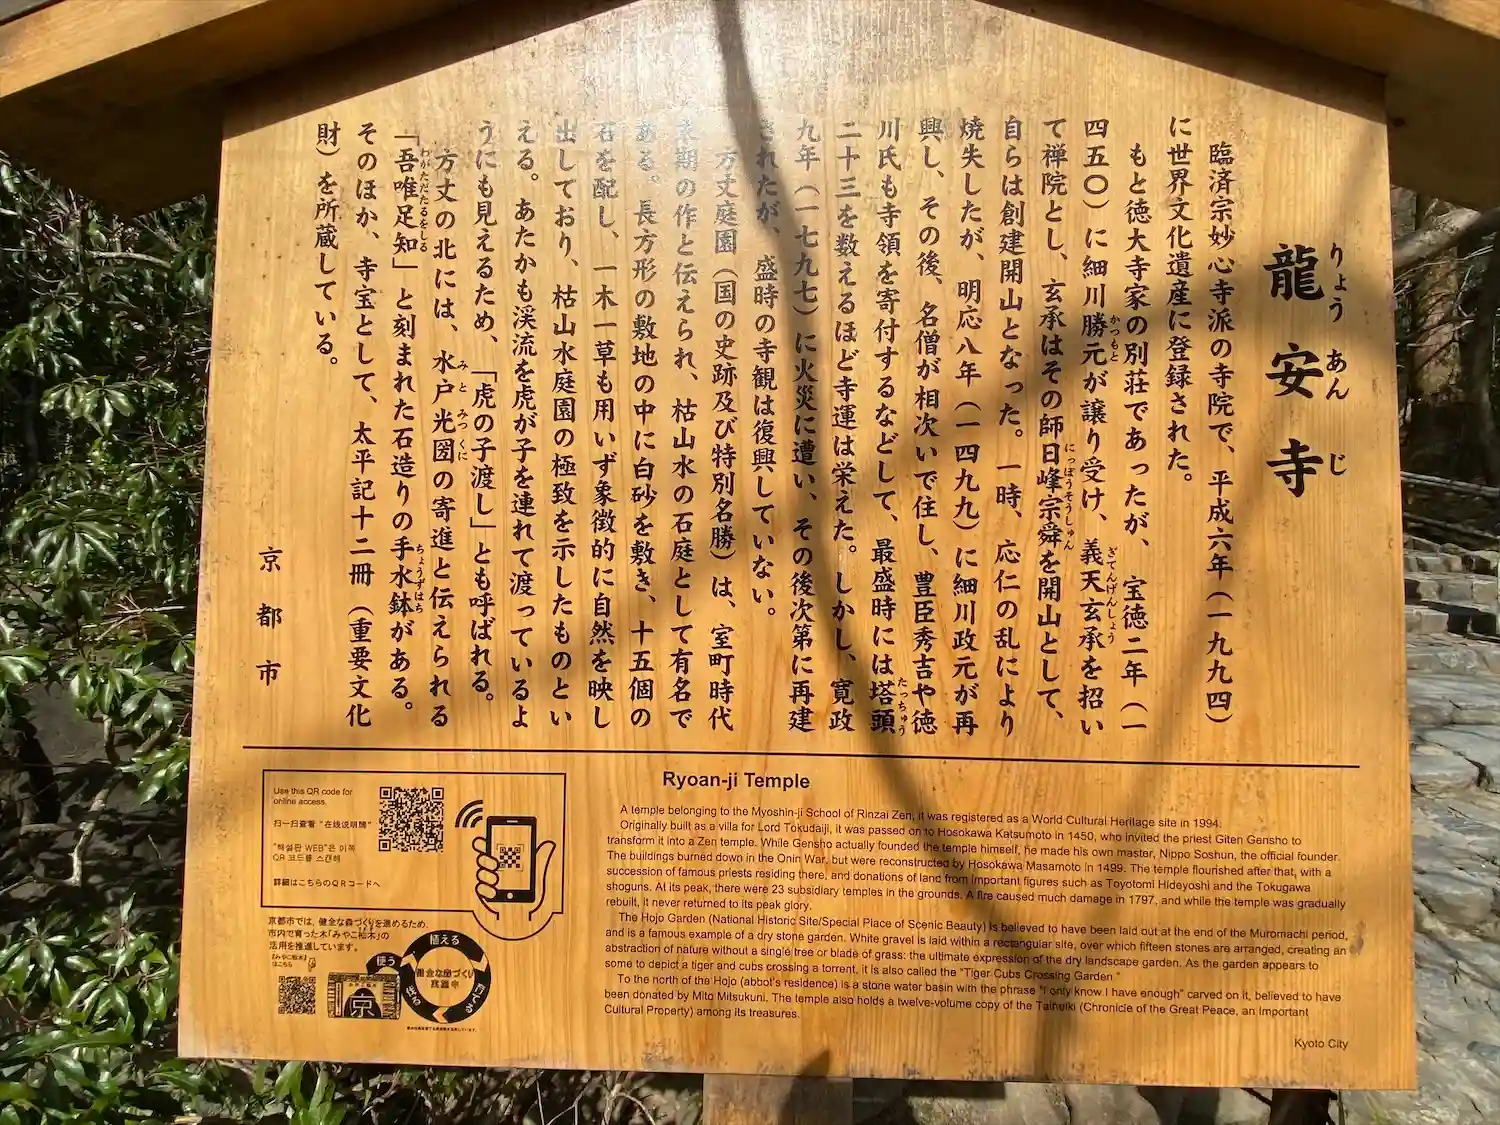 龍安寺
りょうあんじ
臨済宗妙心寺派の寺院で、平成六年（一九九四）
に世界文化遺産に登録された。
もと徳大寺家の別荘であったが、宝徳二年（一
四五〇）に細川勝元が譲り受け、義天玄承を招い
かつもと
ぎてんげんしょう
て禅院とし、玄承はその師日峰宗舜を開山として、
にっぽうそうしゅん
自らは創建開山となった。一時、応仁の乱により
焼失したが、明応八年（一四九九）に細川政元が再
興し、その後、名僧が相次いで住し、豊臣秀吉や徳
川氏も寺領を寄付するなどして、最盛時には塔頭
たっちゅう
二十三を数えるほど寺運は栄えた。しかし、寛政
九年（一七九七）に火災に遭い、その後次第に再建
されたが、盛時の寺観は復興していない。
方丈庭園（国の史跡及び特別名勝）は、室町時代
末期の作と伝えられ、枯山水の石庭として有名で
ある。長方形の敷地の中に白砂を敷き、十五個の
石を配し、一木一草も用いず象徴的に自然を映し
出しており、枯山水庭園の極致を示したものとい
える。あたかも渓流を虎が子を連れて渡っているよ
うにも見えるため、「虎の子渡し」とも呼ばれる。
方丈の北には、水戸光圀の寄進と伝えられる
みとみつくに
「吾唯足知」と刻まれた石造りの手水鉢がある。
わがただたるをしる
ちょうずばち
そのほか、寺宝として、太平記十二冊（重要文化
財）を所蔵している。
京都市
Ryoan-ji Temple
A temple belonging to the Myoshin-ji School of Rinzai Zen, it was registered as a World Cultural Heritage site in 1994.
Originally built as a villa for Lord Tokudaiji, it was passed on to Hosokawa Katsumoto in 1450, who invited the priest Giten Gensho to
transform it into a Zen temple. While Gensho actually founded the temple himself, he made his own master, Nippo Soshun, the official founder.
The buildings burned down in the Onin War, but were reconstructed by Hosokawa Masamoto in 1499. The temple flourished after that, with a
succession of famous priests residing there, and donations of land from important figures such as Toyotomi Hideyoshi and the Tokugawa
shoguns. At its peak, there were 23 subsidiary temples in the grounds. A fire caused much damage in 1797, and while the temple was gradually
rebuilt, it never returned to its peak glory.
The Hojo Garden (National Historic Site/Special Place of Scenic Beauty) is believed to have been laid out at the end of the Muromachi period,
and is a famous example of a dry stone garden. White gravel is laid within a rectangular site, over which fifteen stones are arranged, creating an
abstraction of nature without a single tree or blade of grass: the ultimate expression of the dry landscape garden. As the garden appears to
some to depict a tiger and cubs crossing a torrent, it is also called the "Tiger Cubs Crossing Garden."
To the north of the Hojo (abbot's residence) is a stone water basin with the phrase "I only know I have enough" carved on it, believed to have
been donated by Mito Mitsukuni. The temple also holds a twelve-volume copy of the Taiheiki (Chronicle of the Great Peace, an Important
Cultural Property) among its treasures.
Kyoto City
Use this QR code for
online access.
扫一扫查看“在线说明牌”
"해설판 WEB"은 이쪽
QR 코드를 스캔해
詳細はこちらのＱＲコードへ
京都市では、健全な森づくりを進めるため、
市内で育った木「みやこ杣木」の
活用を推進しています。
「みやこ杣木」
はこちら
京
植える
育てる
伐る
使う
健全な森づくり
実践中